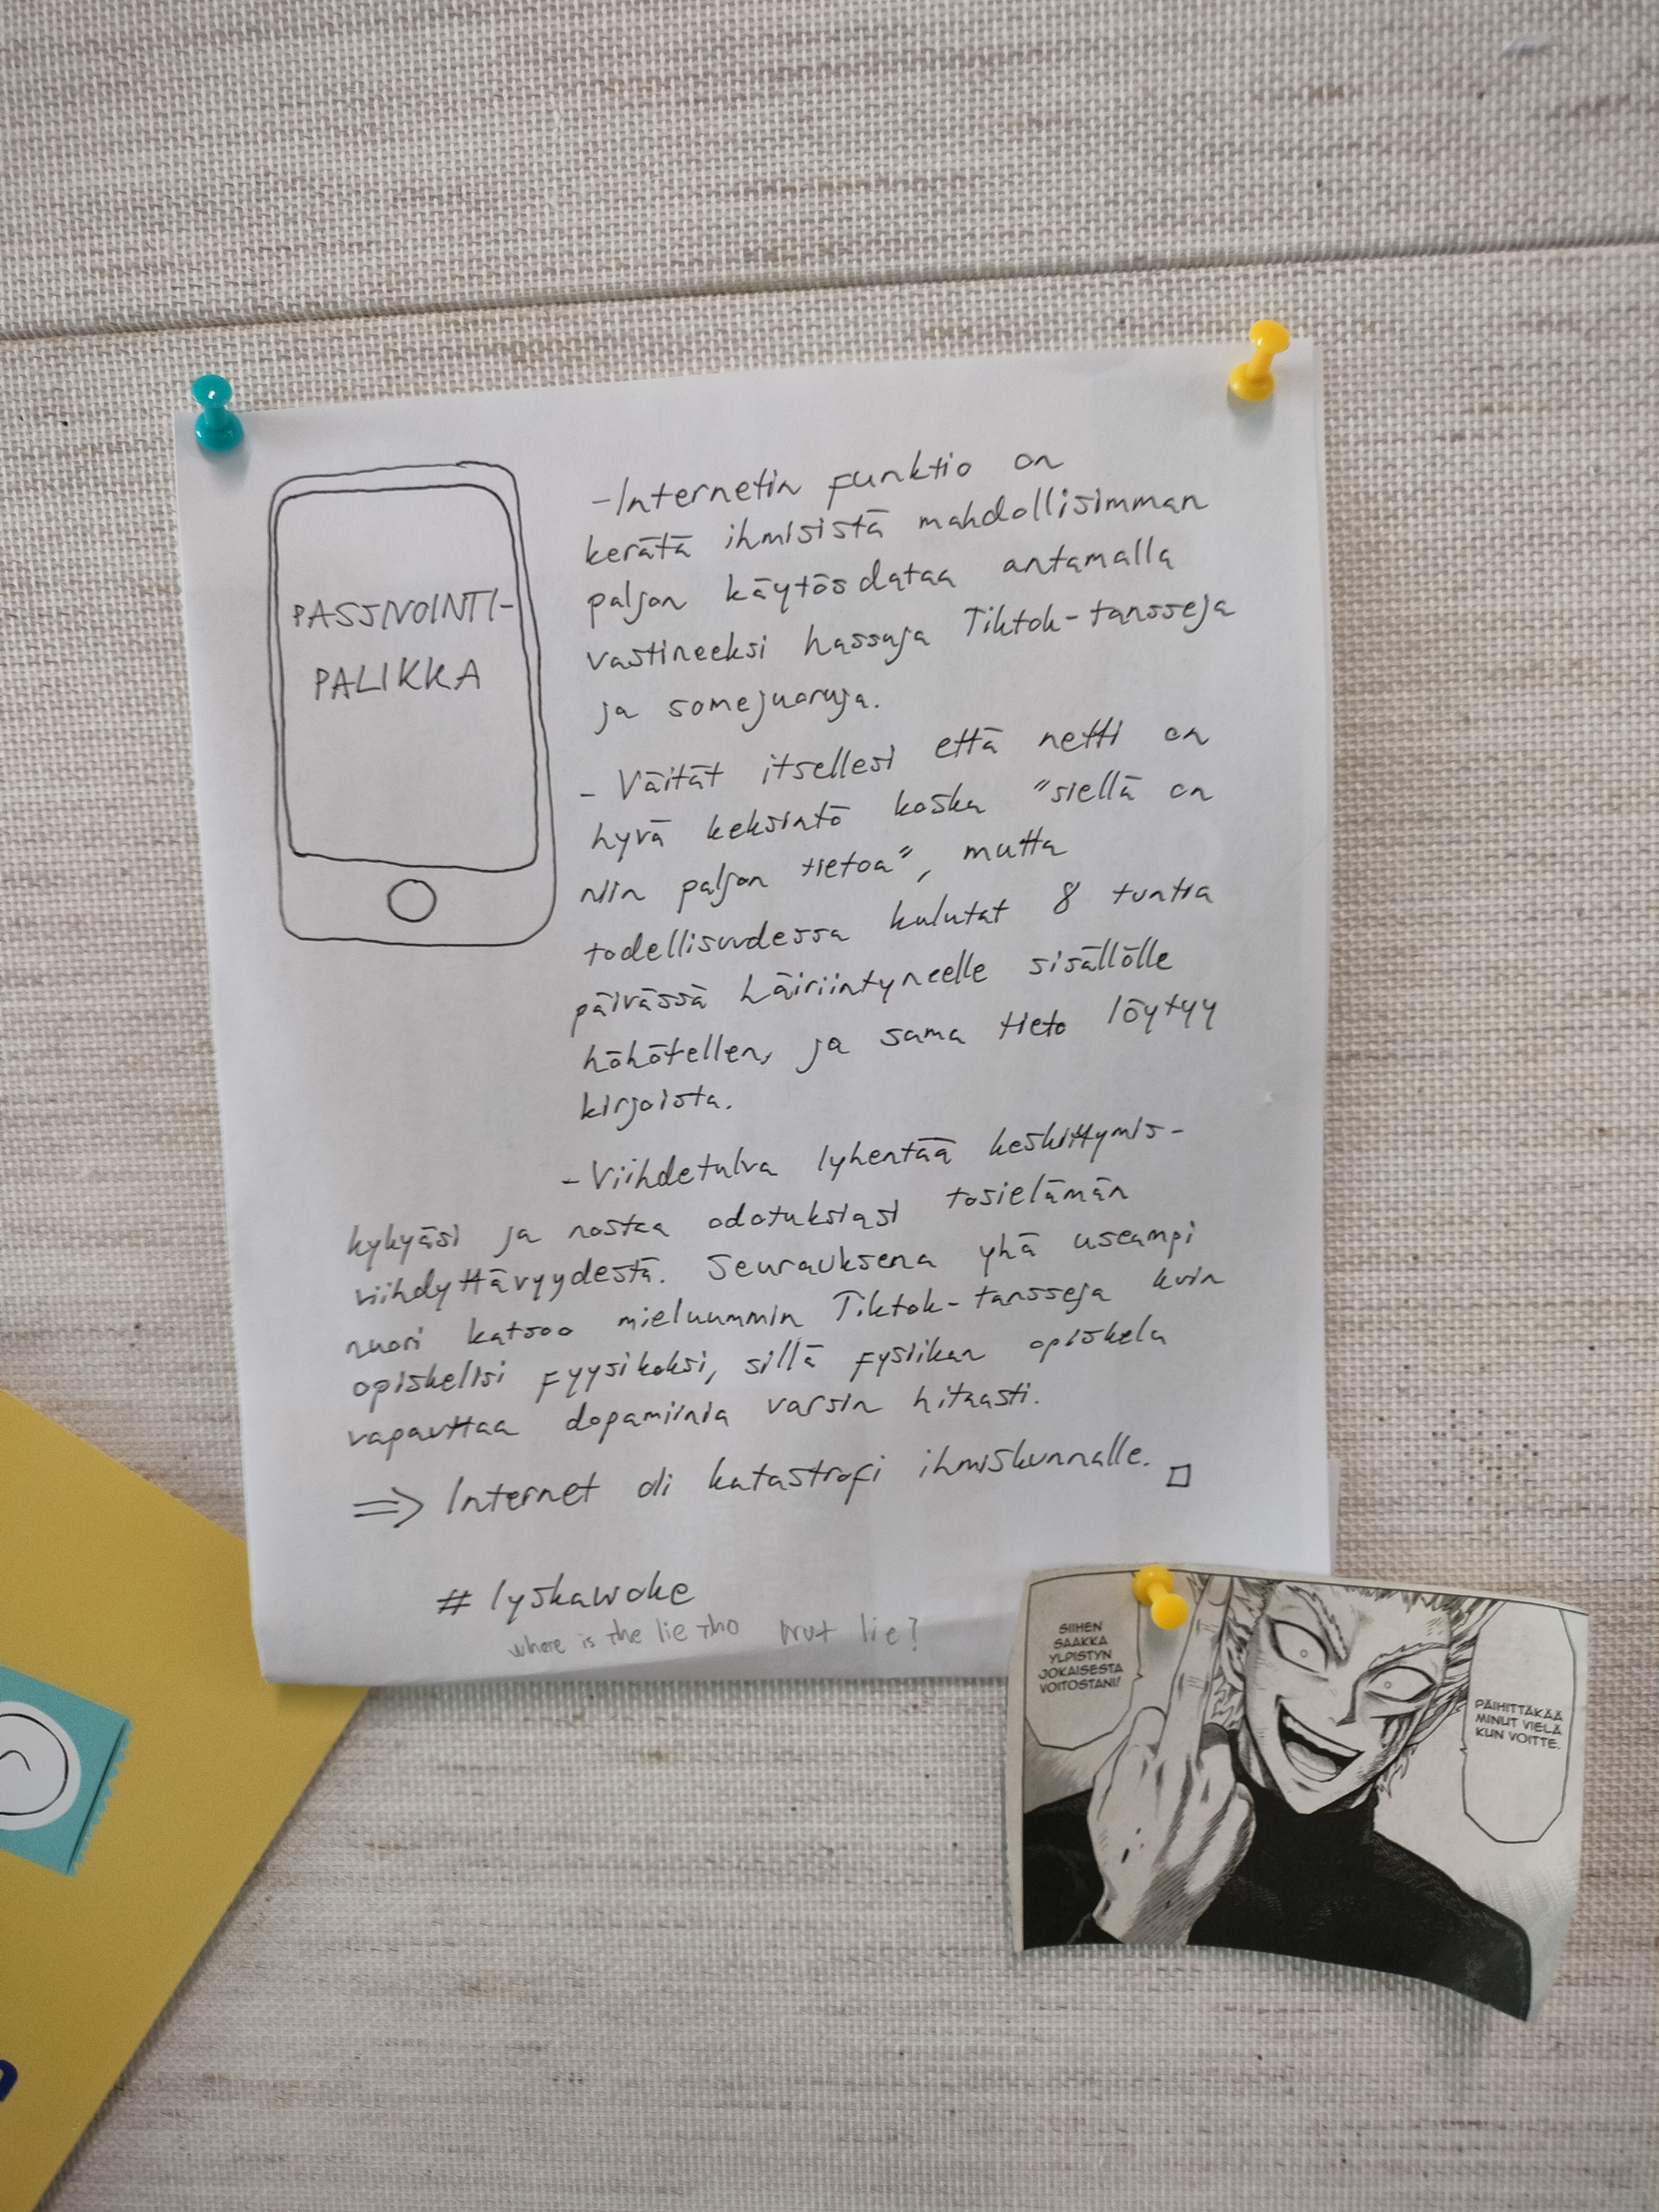 PASSIVOINTI-
PALIKKA
-Internetin funktio on
kerätä ihmisistä mahdollisimman
paljon käytösdataa antamalla
vastineeksi hassuja Tiktok-tansseja
ja somejuoruja.
- Väität itsellesi että netti on
hyvä keksintö koska "siellä on
niin paljon tietoa", mutta
todellisuudessa kulutat 8 tuntia
päivässä häiriintyneelle sisällölle
höhötellen, ja sama tieto löytyy
kirjoista.
-Viihdetulva lyhentää keskittymis-
kykyäsi ja nostaa odotuksiasi tosielämän
viihdyttävyydestä. Seurauksena yhä useampi
nuori katsoo mieluummin Tiktok-tansseja kuin
opiskelisi fyysikoksi, sillä fysiikan opiskelu
vapauttaa dopamiinia varsin hitaasti.
⇒ Internet oli katastrofi ihmiskunnalle. □
# lyskawoke
where is the lie tho wut lie?
SIIHEN
SAAKKA
YLPISTYN
JOKAISESTA
VOITOSTANI!
PÄIHITTÄKÄÄ
MINUT VIELÄ
KUN VOITTE.